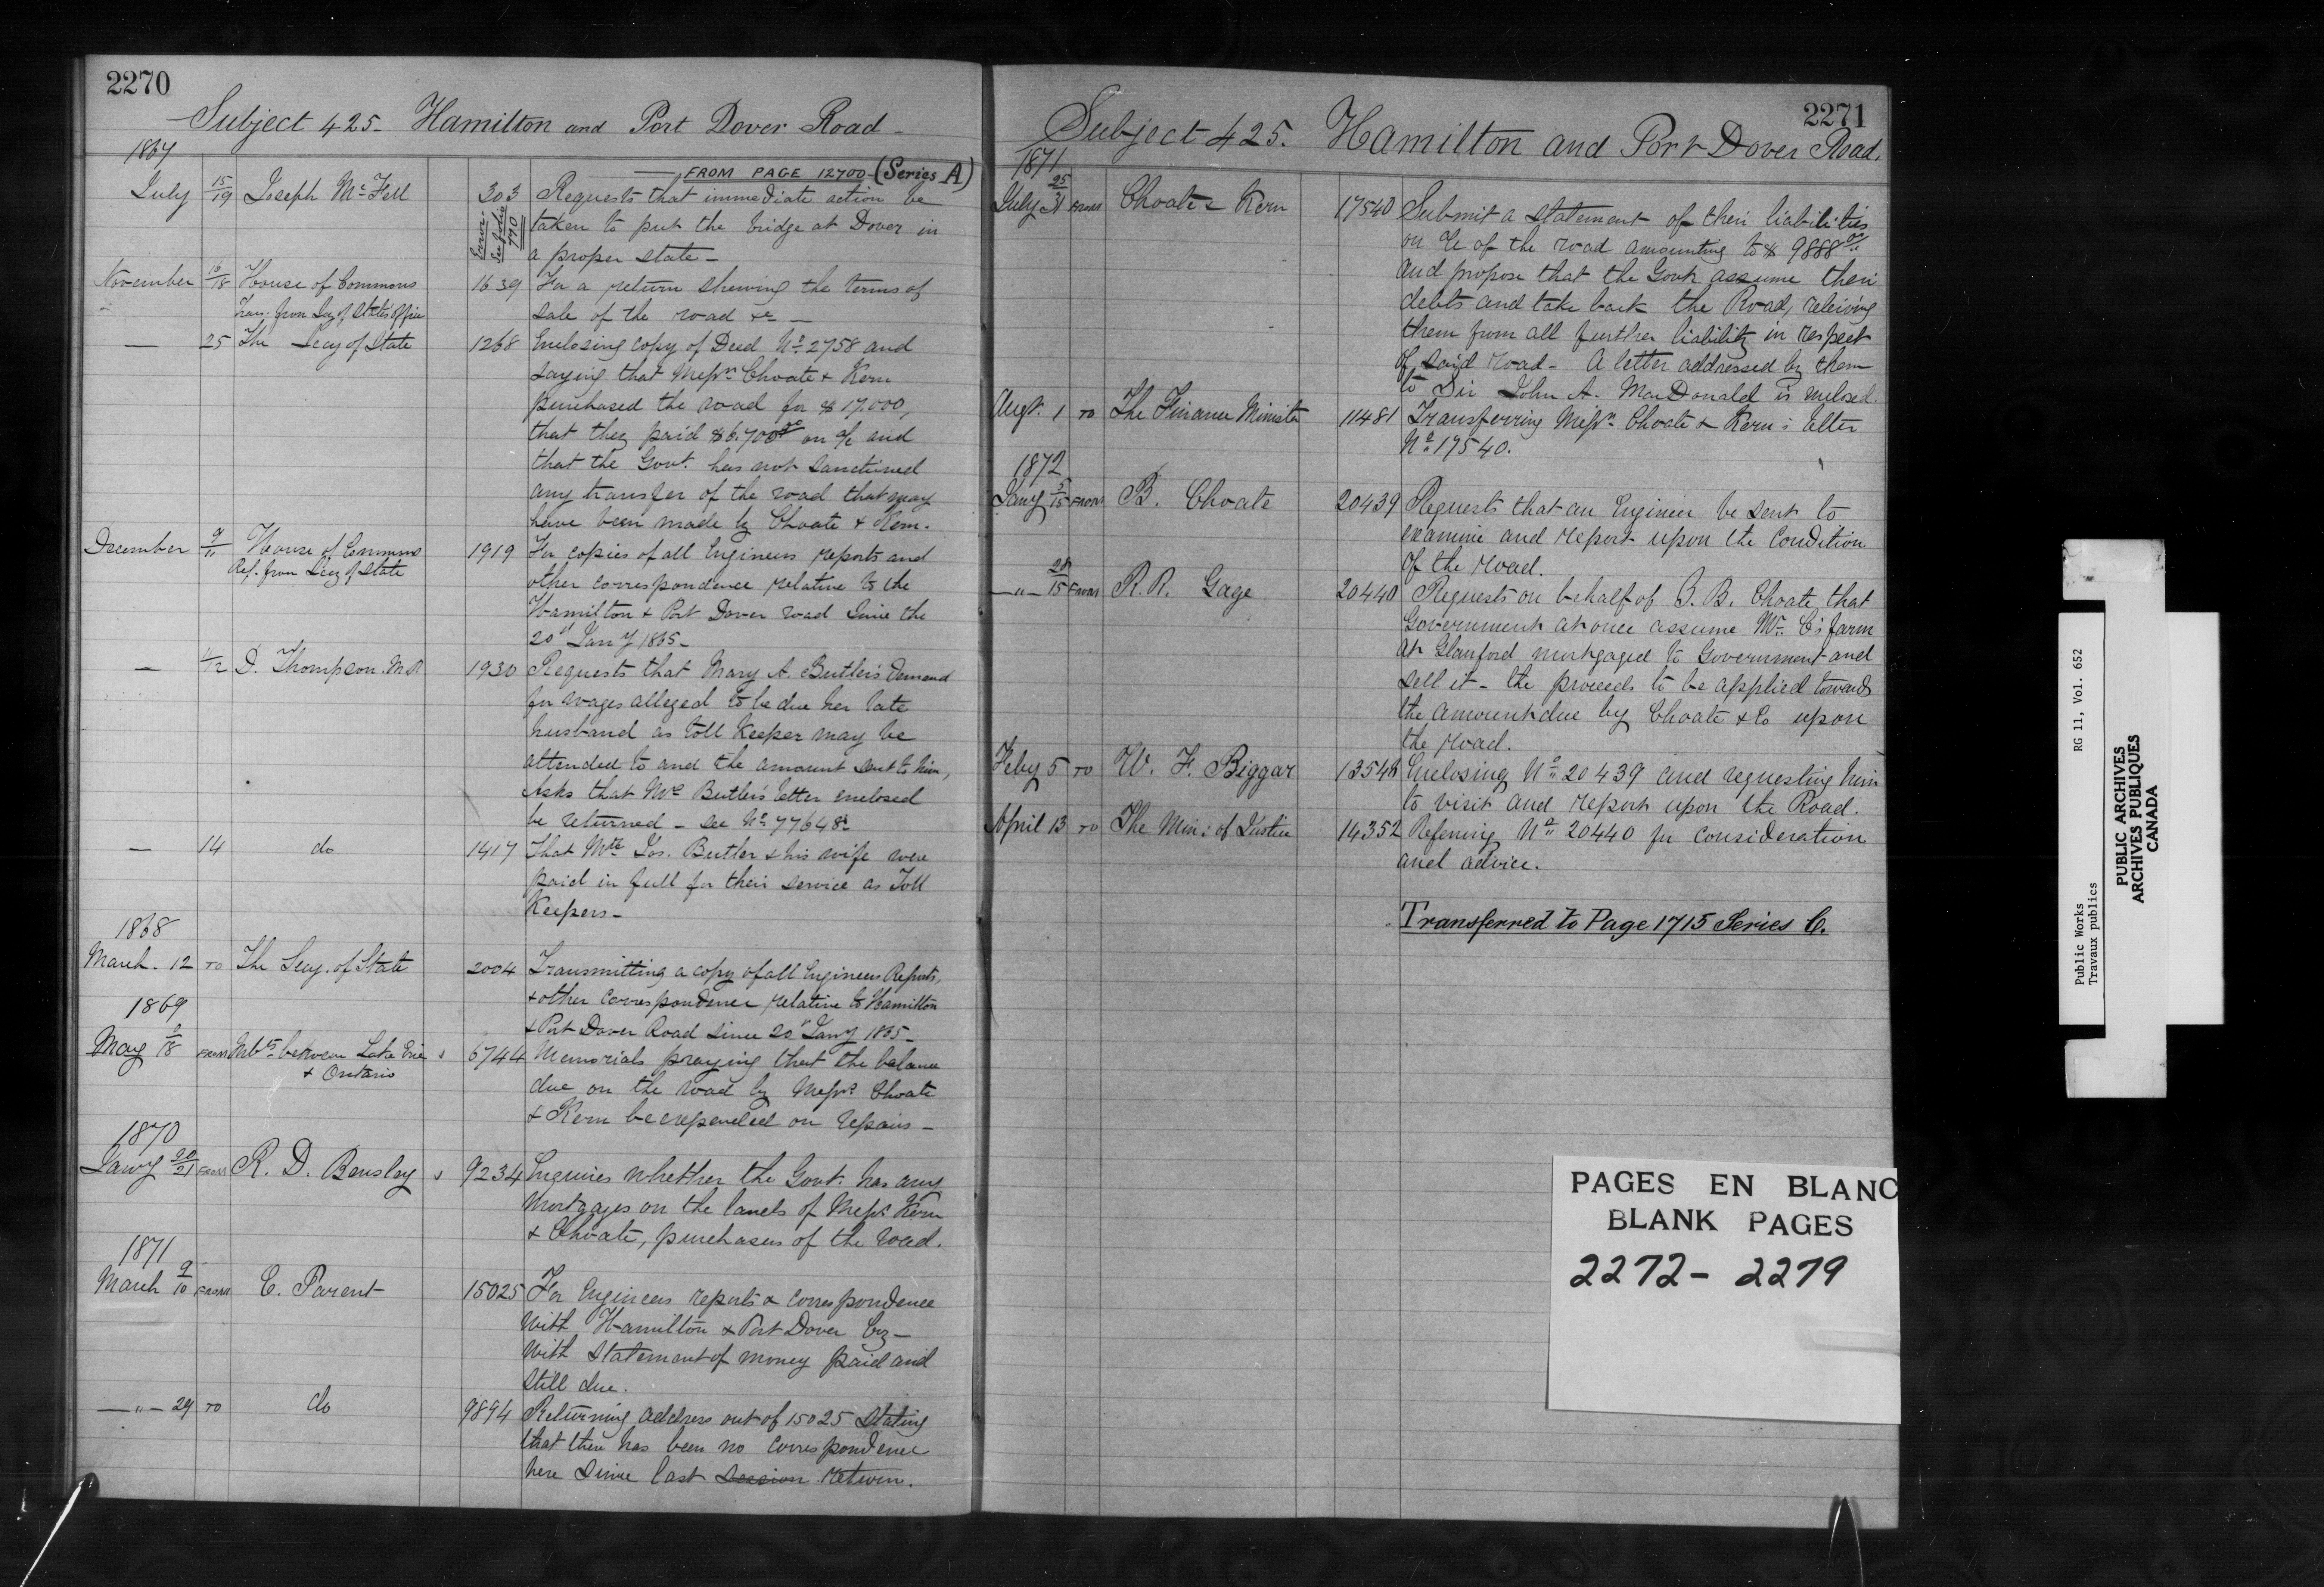 2270
Subject 425- Hamilton and Port Dover Road-
1867
FROM PAGE 12700-(Series A)
July 15/19 Joseph McFell 303 Requests that immediate action be
Error- See folio 770
taken to put the bridge at Dover in
a proper state-
November 16/18 House of Commons 1639 For a return shewing the terms of
Trans. from Secy of State's Office sale of the road &c -
— 25 The Secy of State 1268 Enclosing copy of Deed No 2758 and
saying that Messrs Choate & Kern
purchased the road for $17.000,
that they paid $6.700 00 on a/c and
that the Govt. has not sanctioned
any transfer of the road that may
have been made by Choate & Kern.
December 9/11 House of Commons 1919 For copies of all Engineers reports and
Ref. from Secy of State other correspondence relative to the
Hamilton & Port Dover road since the
20th Jany 1865-
— 11/12 D. Thompson. M.P. 1930 Requests that Mary A. Butler's demand
for wages alleged to be due her late
husband as toll keeper may be
attended to and the amount sent to him,
Asks that Mrs Butler's letter enclosed
be returned - see No 77648
— 14 do 1417 That Jos. Butler & his wife were
paid in full for their service as Toll
Keepers-
1868
March. 12 TO The Secy. of State 2004 Transmitting a copy of all Engineers Reports,
& other correspondence relative to Hamilton
& Port Dover Road since 20th Jany 1865-
1869
May 18 FROM Inbts between Lake Erie 6744 Memorials praying that the balance
& Ontario due on the road by Messrs Choate
& Kern be expended on repairs-
1870
Jany 20/21 FROM R. D. Bensley 9234 Enquires whether the Govt. has any
mortgages on the lands of Messrs Kern
& Choate, purchasers of the road.
1871
March 9/10 FROM E. Parent 15025 For Engineers reports & correspondence
with Hamilton & Port Dover Coy-
with statement of money paid and
still due.
—"— 29 TO do 9894 Returning address out of 15025 stating
that there has been no correspondence
here since last session return.
2271
Subject 425. Hamilton and Port Dover Road.
1871
July 25/31 FROM Choate & Kern 17540 Submit a statement of their liabilities
on a/c of the road amounting to $ 9888
and propose that the Govt assume their
debts and take back the Road, releiving
them from all further liability in respect
of said road- A letter addressed by them
to Sir John A. MacDonald is enclosed.
Augt. 1 TO The Finance Minister 11481 Transferring Messrs Choate & Kern's letter
No 17540.
1872
Jany 5/15 FROM B. Choate 20439 Requests that an Engineer be sent to
examine and report upon the condition
of the road.
—"— 15 FROM R. R. Gage 20440 Requests on behalf of B. Choate that
Government at once assume Mr. C's farm
at Glanford mortgaged to Government and
sell it - the proceeds to be applied towards
the amount due by Choate & Co upon
the road.
Feby 5 TO W. F. Biggar Enclosing No 20439 and requesting him
to visit and report upon the Road.
April 13 TO The Min: of Justice 14352 Referring No 20440 for consideration
and advice.
Transferred to Page 1715 Series C.
PAGES EN BLANC
BLANK PAGES
2272 - 2279
Public Works RG 11, Vol. 652
Travaux publics
PUBLIC ARCHIVES
ARCHIVES PUBLIQUES
CANADA